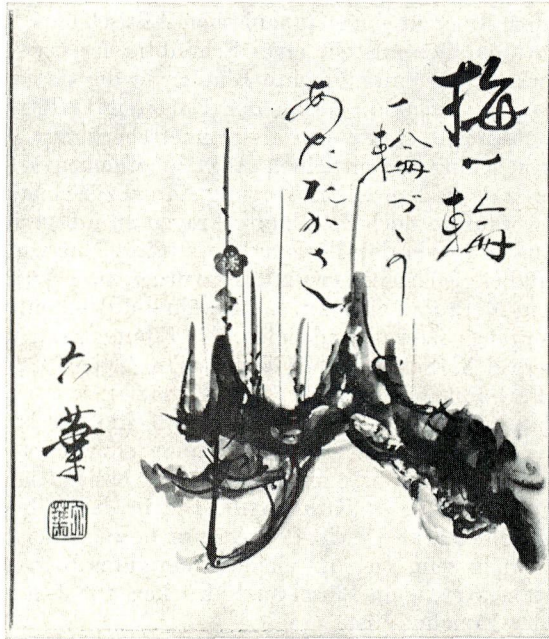 梅一輪
一輪づゝの
あたたかさ
六華